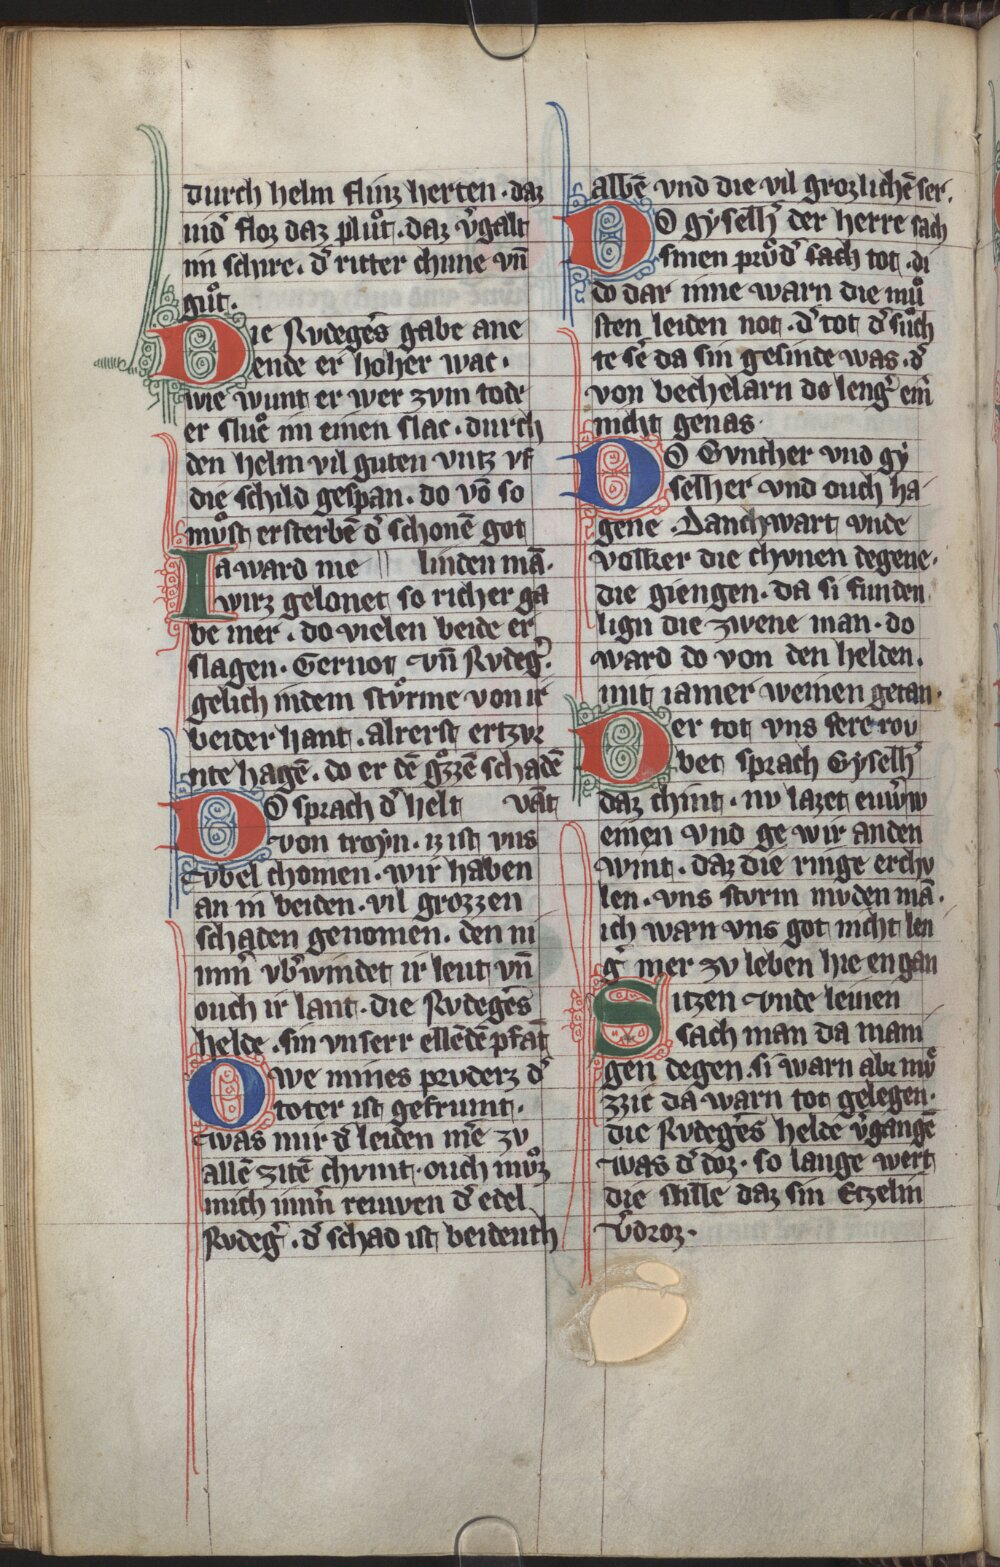 durch helm flinz herten · daz
nid̾ floz daz plůt · daz v̾galt
im schire · d̾ ritter chune vn̄
gůt ·
Die Rvdegers gabe ane
ende er hoher wac ·
wie wunt er wer zvm tode
er slůc im einen slac · durch
den helm vil guten vntz vf
die schild gespan · do vō so
můst ersterbē d̾ schonē got
Ia ward nie linden mā · 
wirz gelonet so richer ga
be mer · do vielen beide er
slagen · Gernot vn̄ Rvdeg̾ ·
gelich indem stůrme von ir
beider hant · alrerst ertzvr
nte hagē · do er dē gůzzē schadē
Do sprach d̾ helt vāt
von troyn · iz ist vns
vbel chomen · wir haben
an in beiden · vil grozzen
schaden genomen · den ni
mm̄ vb̾windet ir leut vn̄
ouch ir lant · die Rvdeg̾s
helde · sin vnserr ellēdē pfāt
Owe mines prvderz d̾
toter ist gefrumt ·
was mir d̾ leiden mē zv
allē zitē chvmt · ouch můz
mich imm̄ reuwen d̾ edel
Rvdeg̾ · d̾ schad ist beidenth
albē vnd die vil grozlichē ser ·
Do gyselh̾ der herre sach
sinen průd̾ sach tot · di
do dar inne warn die mů
sten leiden not · d̾ tot d̾ sůch
te sē da sin gesinde was · d̾
von bechelarn do leng̾ ein̄
nicht genas
Do Gvnther vnd gy
selher vnd ouch ha
gene · Danchwart vnde
volker die chvnen degene ·
die giengen · da si funden
lign die zwene man · do
ward do von den helden ·
mit iamer weinen getan ·
Der tot vns sere rov
bet sprach Gyselh̾
daz chint · nv lazet euw̾ w
einen vnd ge wir anden
wint · daz die ringe erchv
len · vns stvrm mvden mā ·
ich wan vns got nicht len
g̾ mer zv leben hie en gan
Sitzen vnde leinen
sach man da mani
gen degen · si warn abr mů
zzic da warn tot gelegen ·
die Rvdeg̾s helde v̾gangē
was d̾ doz · so lange wert
die stille daz sin Etzelin
v̾droz ·